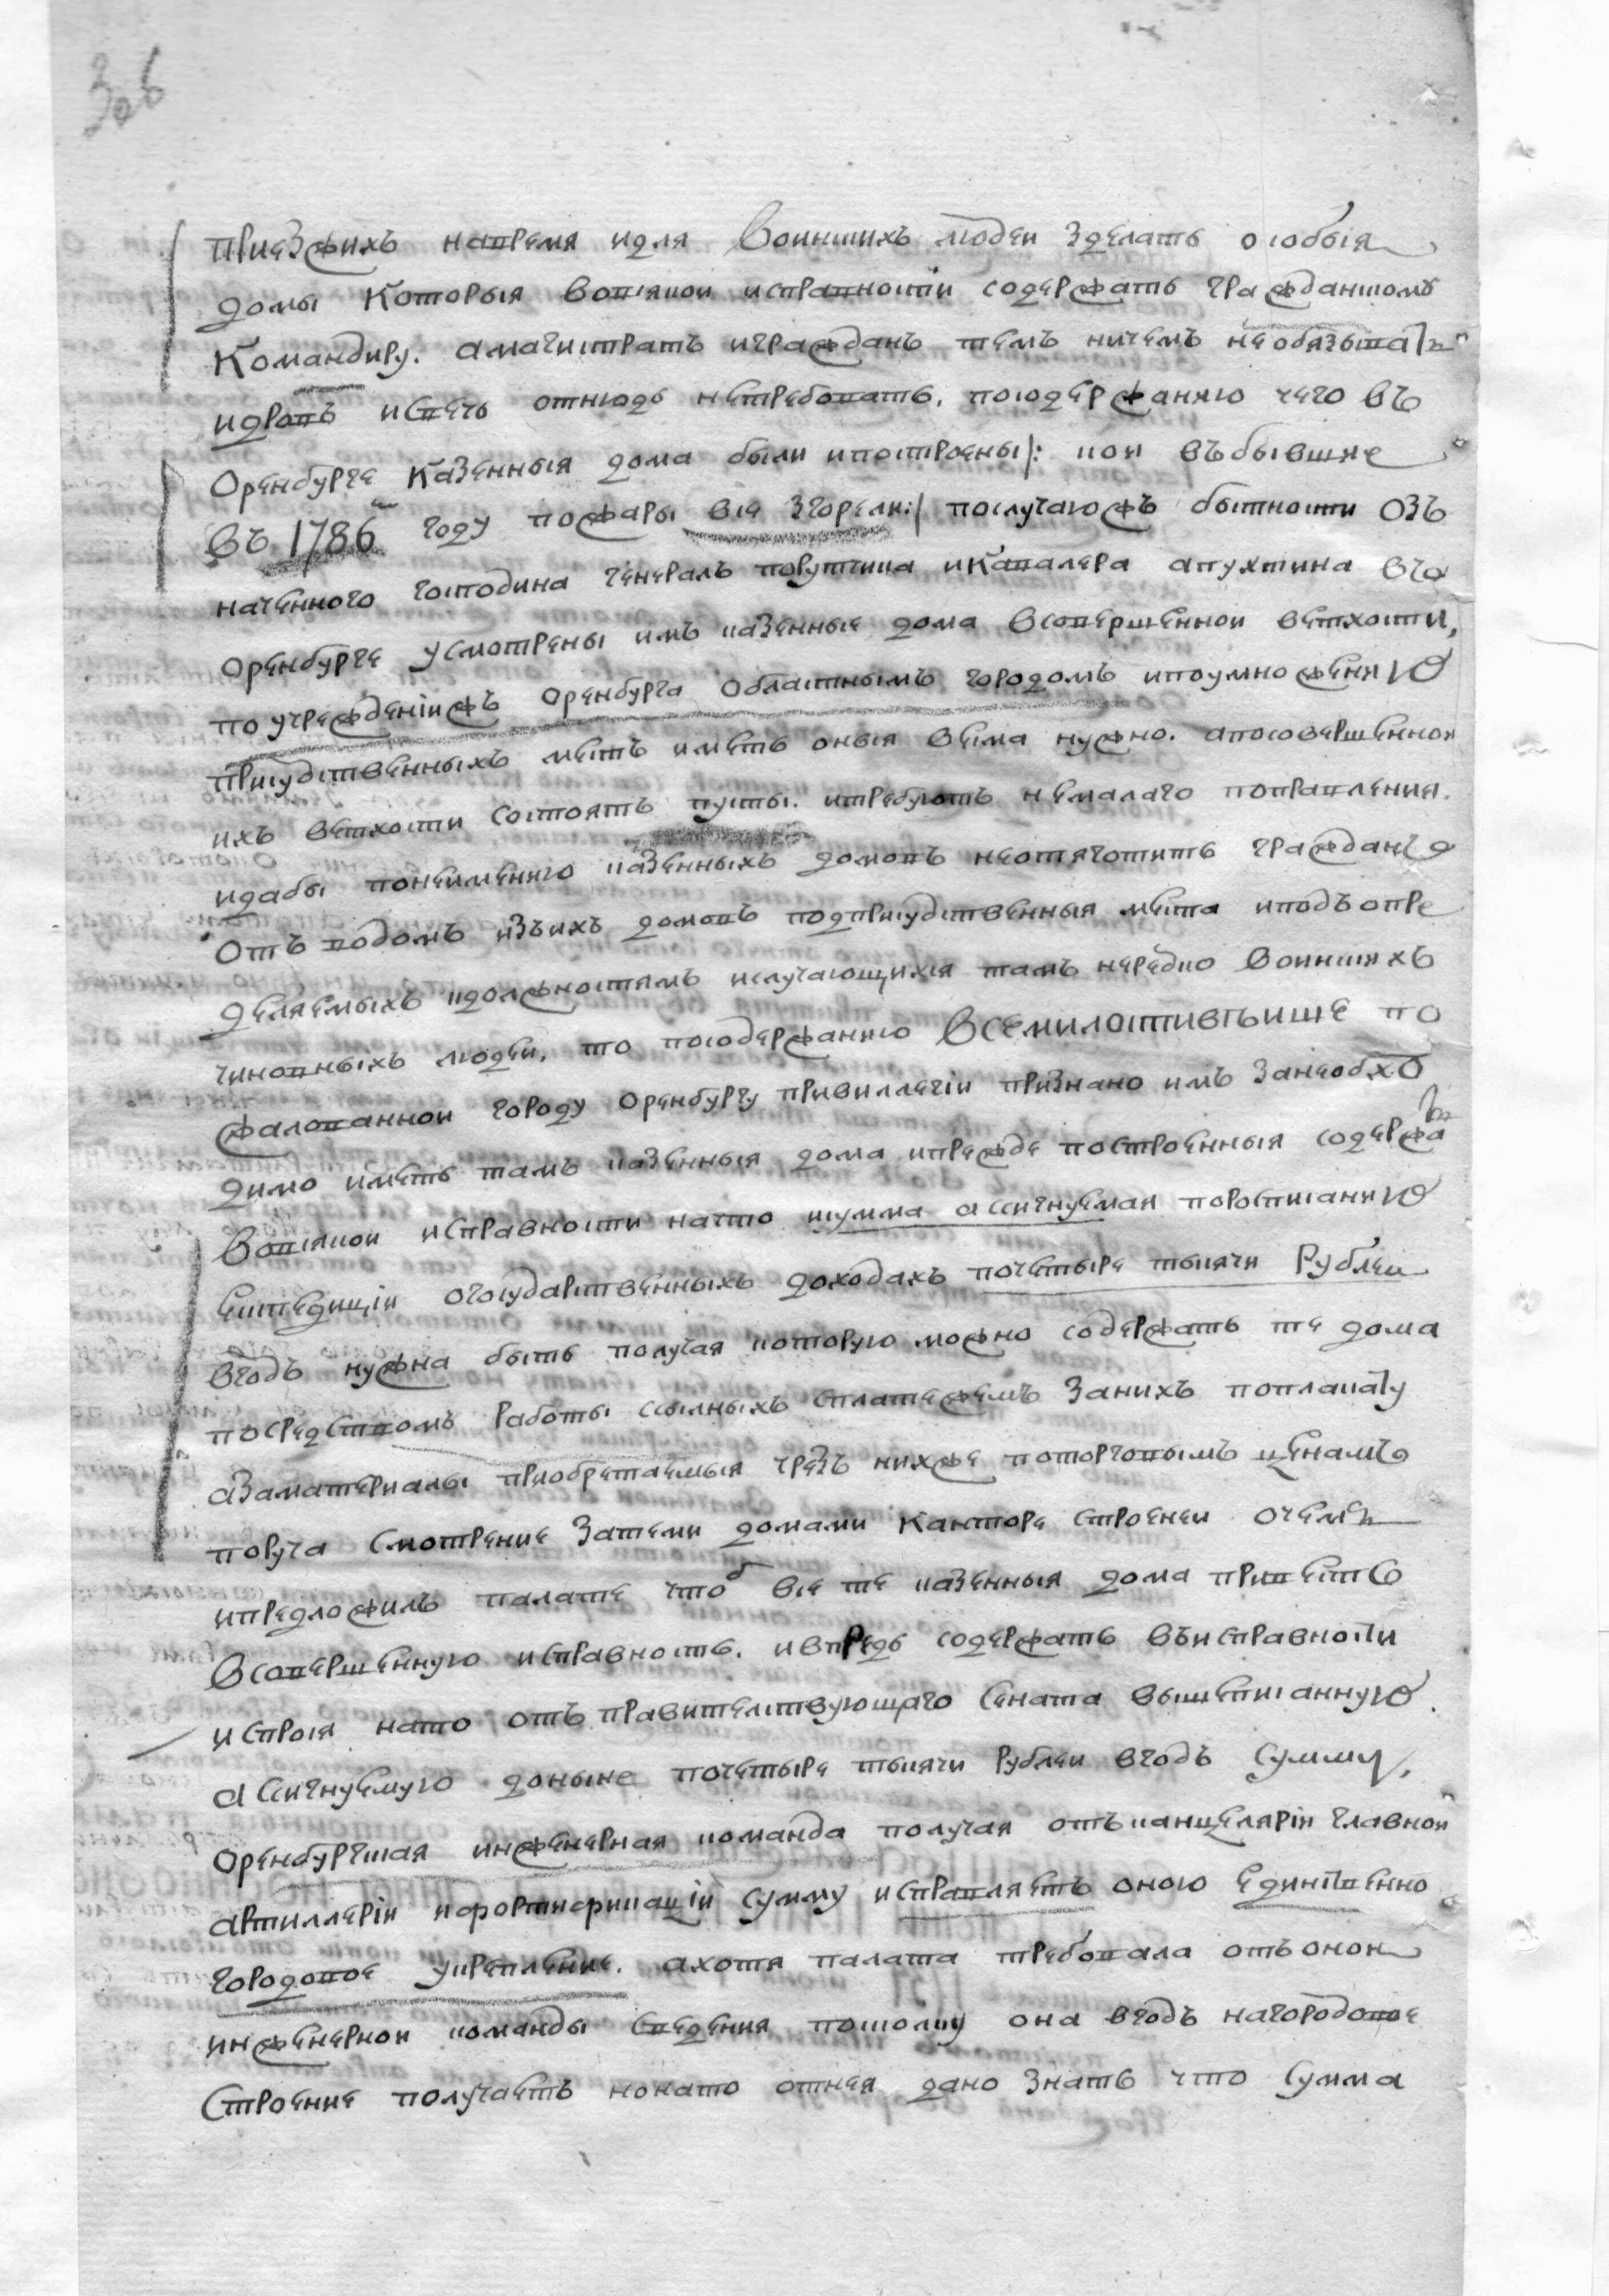 306
приезжихъ навремя идля Воинскихъ людеи зделать особыя
домы Которыя Вовсякои исправности содержать гражданскомъ
Командиру. амагистратъ игражданъ темъ ничемъ необязывать
идровъ исвечь отнюдь нетребовать. посодержанию чего въ
Оренбурге казенныя дома были ипостроены /: кои въбывшие
въ 1786 м году пожары все згорели :/ послучаюжъ бытности озъ
наченного господина генералъ порутчика икавалера апухтина вго
оренбурге усмотрены имъ казенные дома всовершеннои ветхости,
по учрежденіижъ оренбурга областнымъ городомъ ипоумножению
присудственныхъ местъ иметь оныя весма нужно. апосовершеннои
ихъ ветхости состоятъ пусты. итребуютъ немалаго поправления.
идабы понеимению казенныхъ домовъ неотяготить гражданъ
отъ водомъ изъихъ домовъ подприсудственныя места иподъ опре
деляемыхъ кдолжностямъ ислучающихся тамъ нередко воинскихъ
чиновныхъ людеи, то посодержанию Всемилостивѣише по
жалованнои городу оренбургу привиллегіи признано имъ занеобхо
димо иметь тамъ казенныя дома ипрежде построенныя содержать
вовсякои исправности начто исумма ассигнуемая поросписанию
експедиціи огосударственныхъ доходахъ почетыре тысячи рублеи
вгодъ нужна быть получая которую можно содержать те дома
посредствомъ работы ссылныхъ сплатежемъ занихъ поплакату
азаматериалы приобретаемыя чрезъ нихже поторговымъ ценамъ
поруча смотрение затеми домами канторе строенеи очемъ
ипредложилъ палате чтоб все те казенныя дома привесть
всовершенную исправность. ивпредь содержать въисправности
испрося нато отъ правителствующаго Сената вышеписанную
ассигнуемую доныне почетыре тысячи рублеи вгодъ сумму,
оренбургская инженерная команда получая отъканцеляріи главнои
артиллеріи ифортификаціи сумму исправляетъ оною единственно
городовое укрепление. ахотя палата требовала отъонои
инженернои команды сведения поскольку она вгодъ нагородовое
строение получаетъ нонато отнея дано знать что сумма